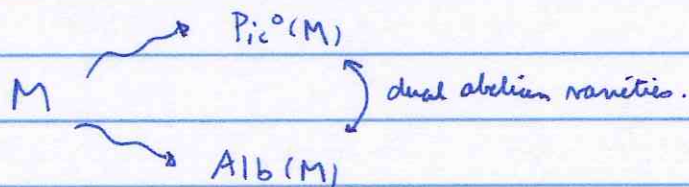 Pic°(M)
M
dual abelian varieties.
Alb(M)